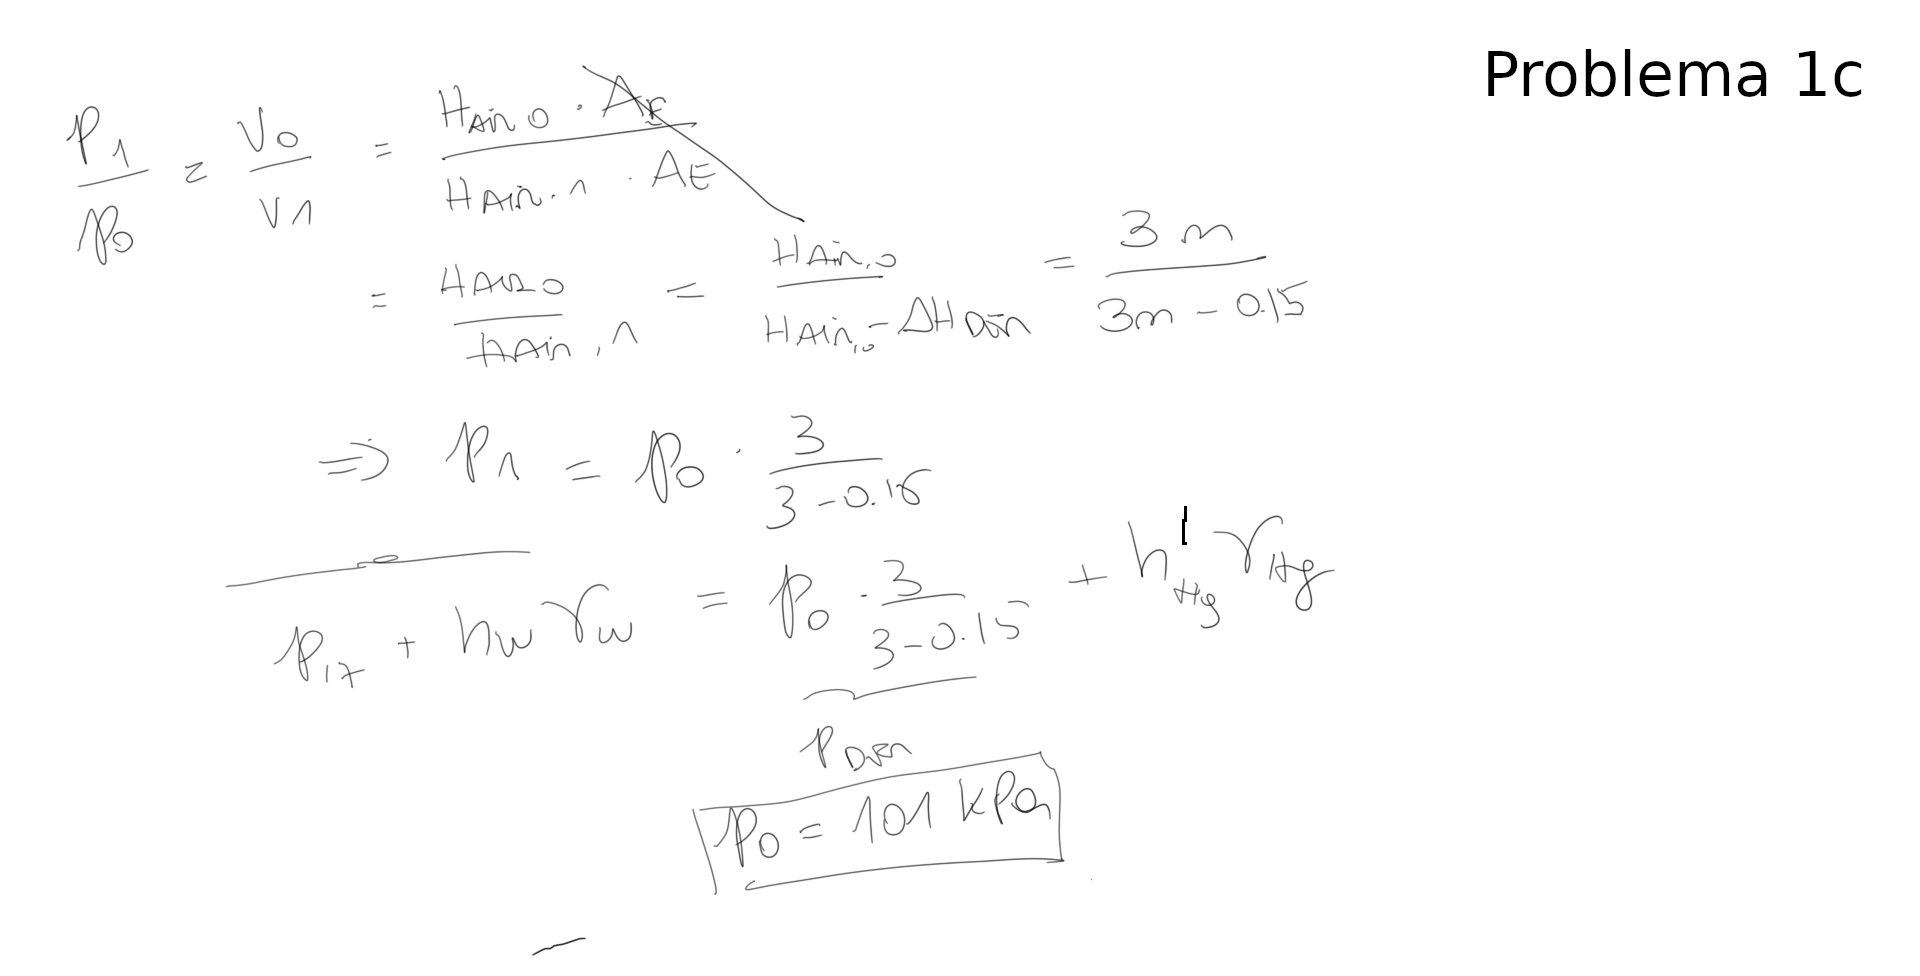 Problema 1c
P1/p0 = V0/V1 = HAir0 · AE / HAir.1 · AE
= HAir0 / HAir,1 = HAir,0 / HAir,0 - ΔH = 3 m / 3m - 0.15
⇒ p1 = p0 · 3 / 3 - 0.15
p17 + hw γw = p0 · 3 / 3 - 0.15 + h'Hg γHg
p
p0 = 101 kPa